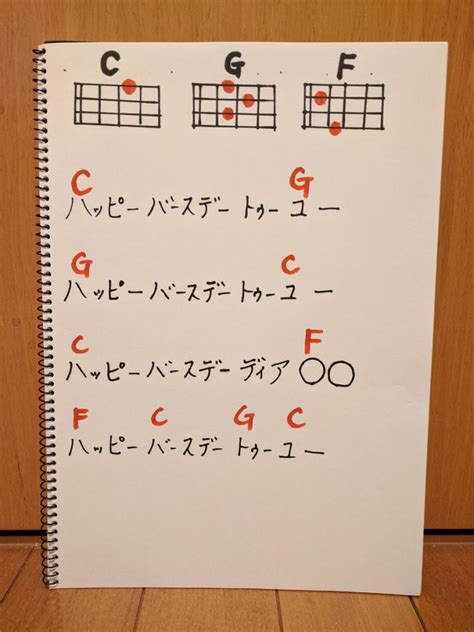 C G F
C G
ハッピー バースデー トゥー ユー
G C
ハッピー バースデー トゥー ユー
C F
ハッピー バースデー ディア ○○
F C G C
ハッピー バースデー トゥー ユー